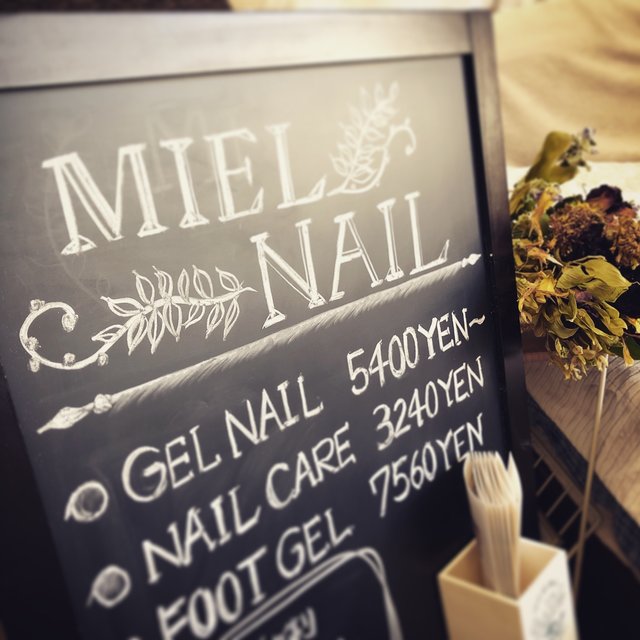 MIEL
NAIL
GEL NAIL 5400YEN~
NAIL CARE 3240YEN
FOOT GEL 7560YEN